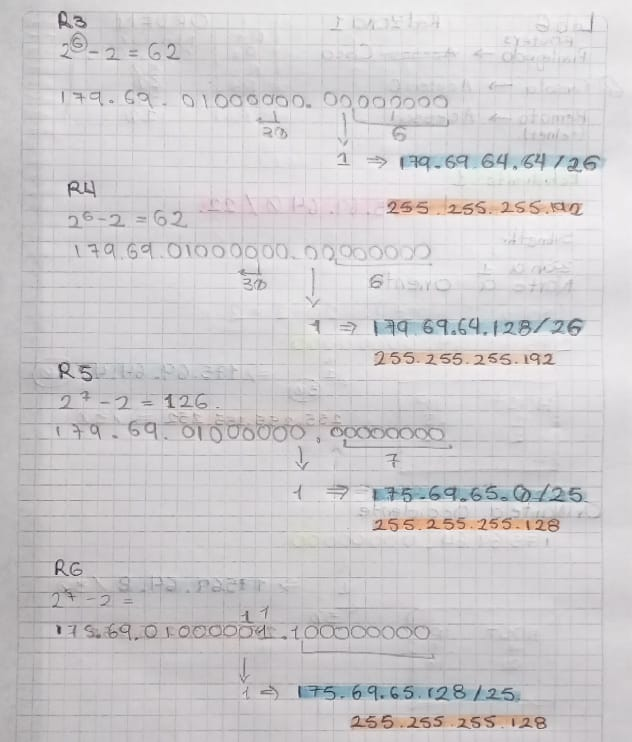 R3
2⁶ - 2 = 62
179.69.01000000.00000000
6
1 ⇒ 179.69.64.64/26
255.255.255.192
R4
2⁶ - 2 = 62
179.69.01000000.00000000
6
1 ⇒ 179.69.64.128/26
255.255.255.192
R5
2⁷ - 2 = 126.
179.69.01000000.00000000
7
1 ⇒ 175.69.65.0/25
255.255.255.128
R6
2⁷ - 2 =
1 1
175.69.01000001.100000000
1 ⇒ 175.69.65.128/25
255.255.255.128